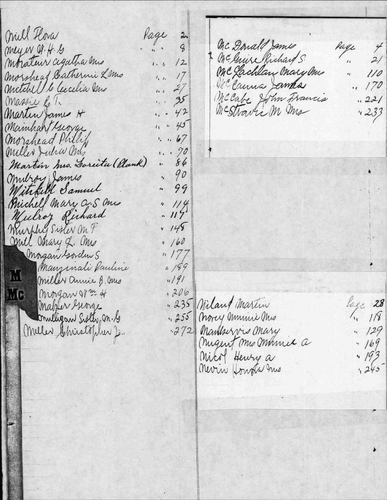 Mill Flora Page 2
Meyer W. H. G " 8
Mirateur Agatha Mrs " 12
Morshead Catherine L Mrs " 17
Mitchell Cecilia Mrs " 27
Massie G. T. " 35
Martin James H " 42
Mainhart George " 45
Morshead Philip " 67
Miller Julia Mrs " 70
Martin Mrs Loreita (Claude) " 86
Mulroy James " 90
Mitchell Samuel " 99
Michell Mary C. S Mrs " 114
Melroy Richard " 117
Murphy Sister M. F. " 145
Mill Mary L Mrs " 160
Morgan Gordon S " 177
Manginali Pauline " 189
Miller Annie B. Mrs " 191
Morgan Wm H " 206
Mabler George " 235
Mulligan Sister M. G " 255
Miller Christopher J. " 272
M
Mc
McDonald James Page 4
McGuire Richard S " 21
McLachlan Mary Mrs " 110
McCanna James " 170
McCabe John Francis " 221
McGovern M Mrs " 233
Niland Martin Page 28
Novey Minnie Mrs " 118
Mary " 129
Nugent Mrs Minnie A " 169
Nicol Henry A " 193
Nevin Honora Mrs " 245